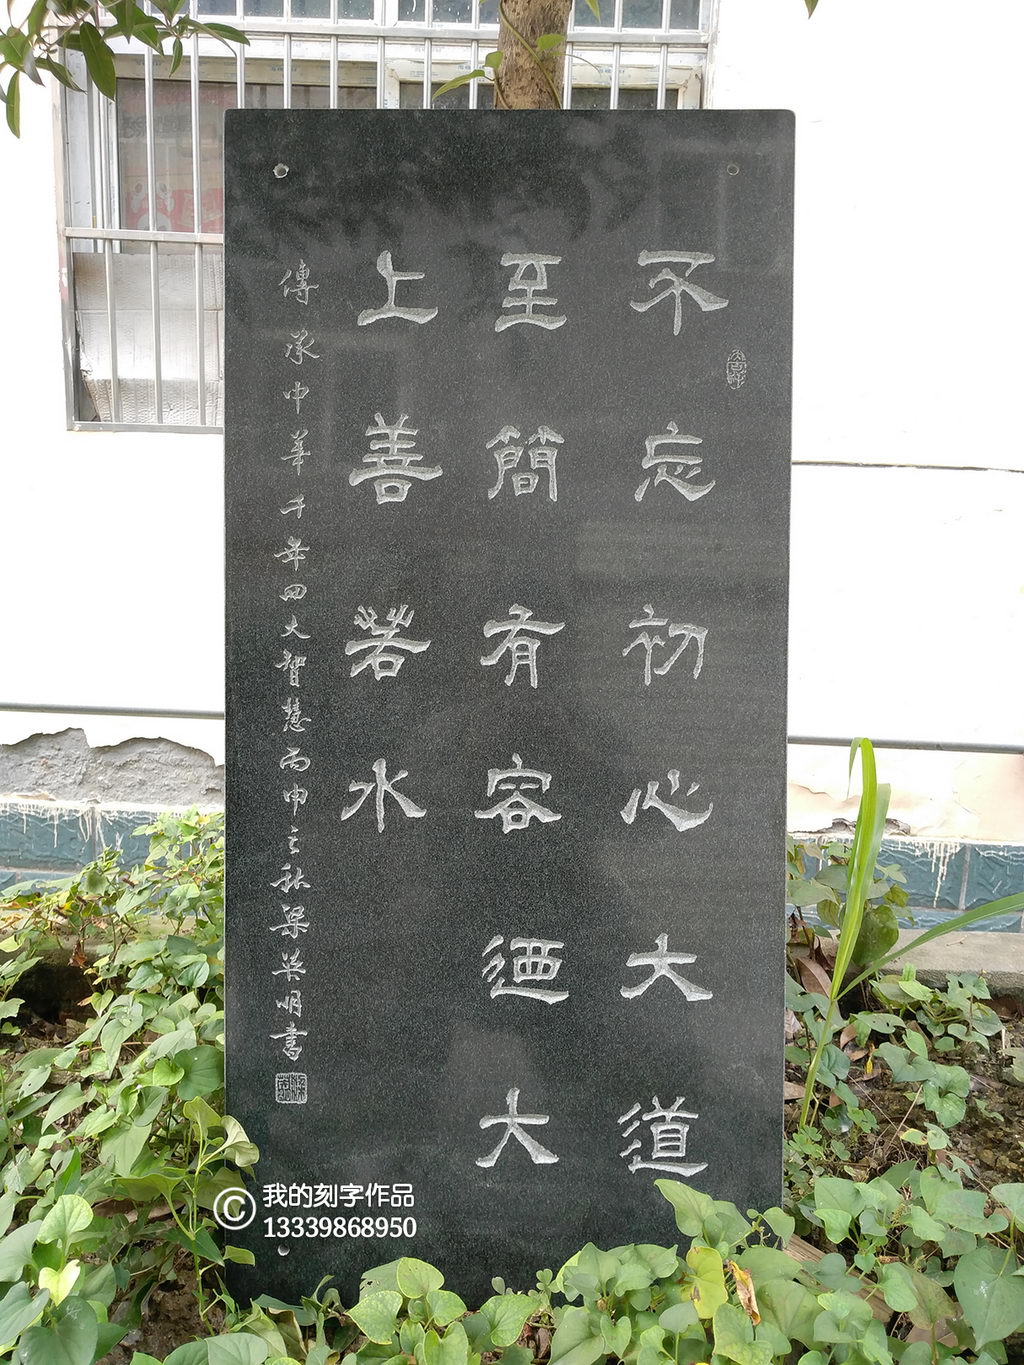 不忘初心大道
至簡有容迺大
上善若水
傳承中華千年四大智慧丙申之秋梁英明書
© 我的刻字作品
13339868950